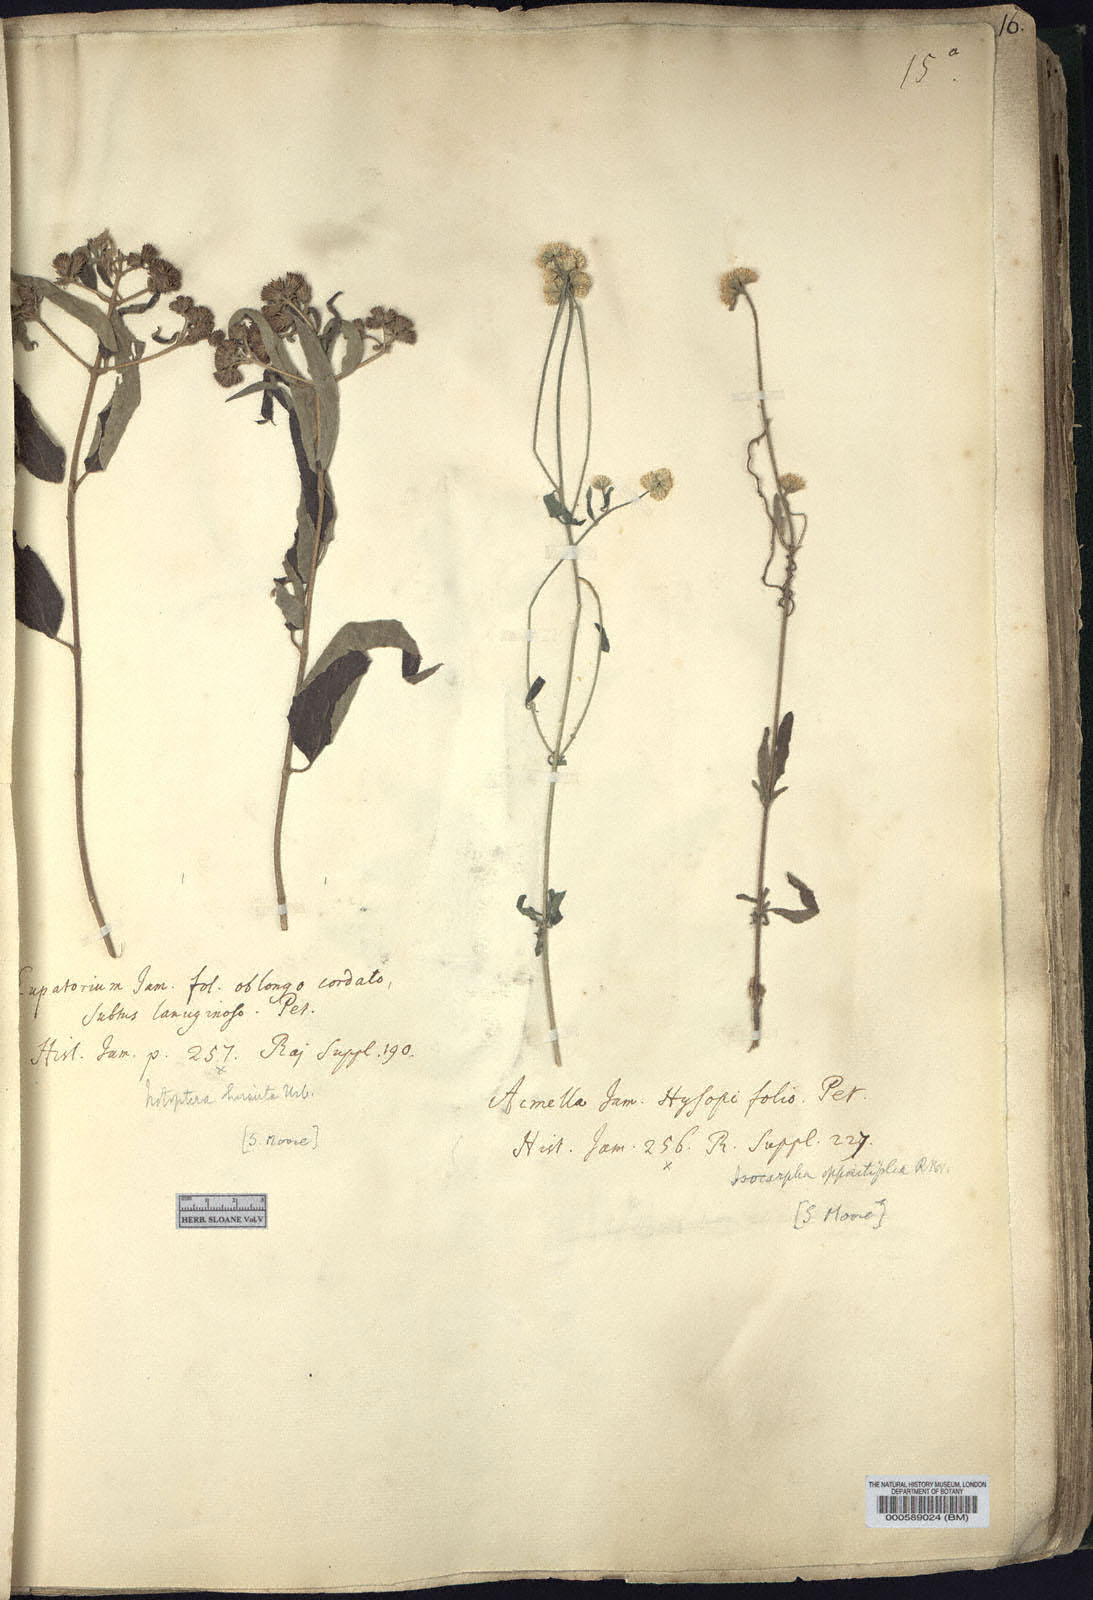 16.
15a.
Eupatorium Jam. fol. oblongo cordato,
Subtus lanuginoso. Pet.
Hist. Jam. p. 257. Raj Suppl. 190.
x
Notoptera hirsuta Urb.
[S. Moore]
HERB. SLOANE Vol. V
Acmella Jam. Hysopi folio. Pet.
Hist. Jam. 256. R. Suppl. 227.
x
Isocarpha oppositifolia R.Br.
[S. Moore]
THE NATURAL HISTORY MUSEUM, LONDON
DEPARTMENT OF BOTANY
000589024 (BM)